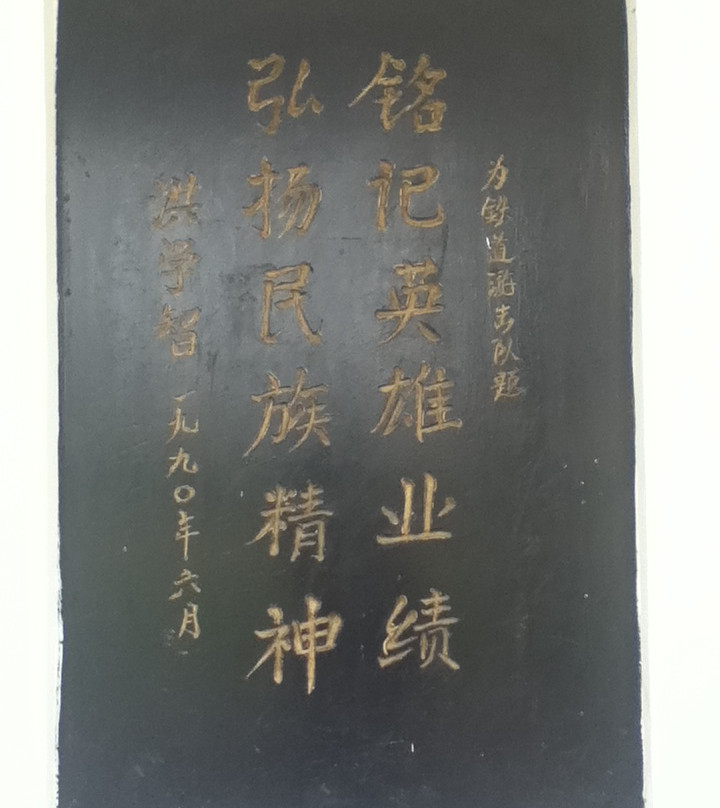 为铁道游击队题
铭记英雄业绩
弘扬民族精神
洪学智 一九九〇年六月